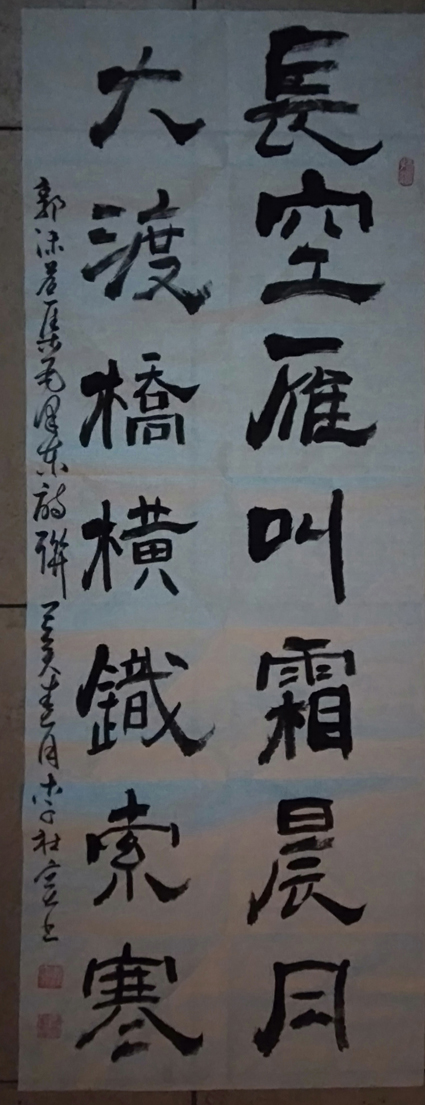 長空雁叫霜晨月
大渡橋橫鐵索寒
郭沫若集毛澤东詩聯